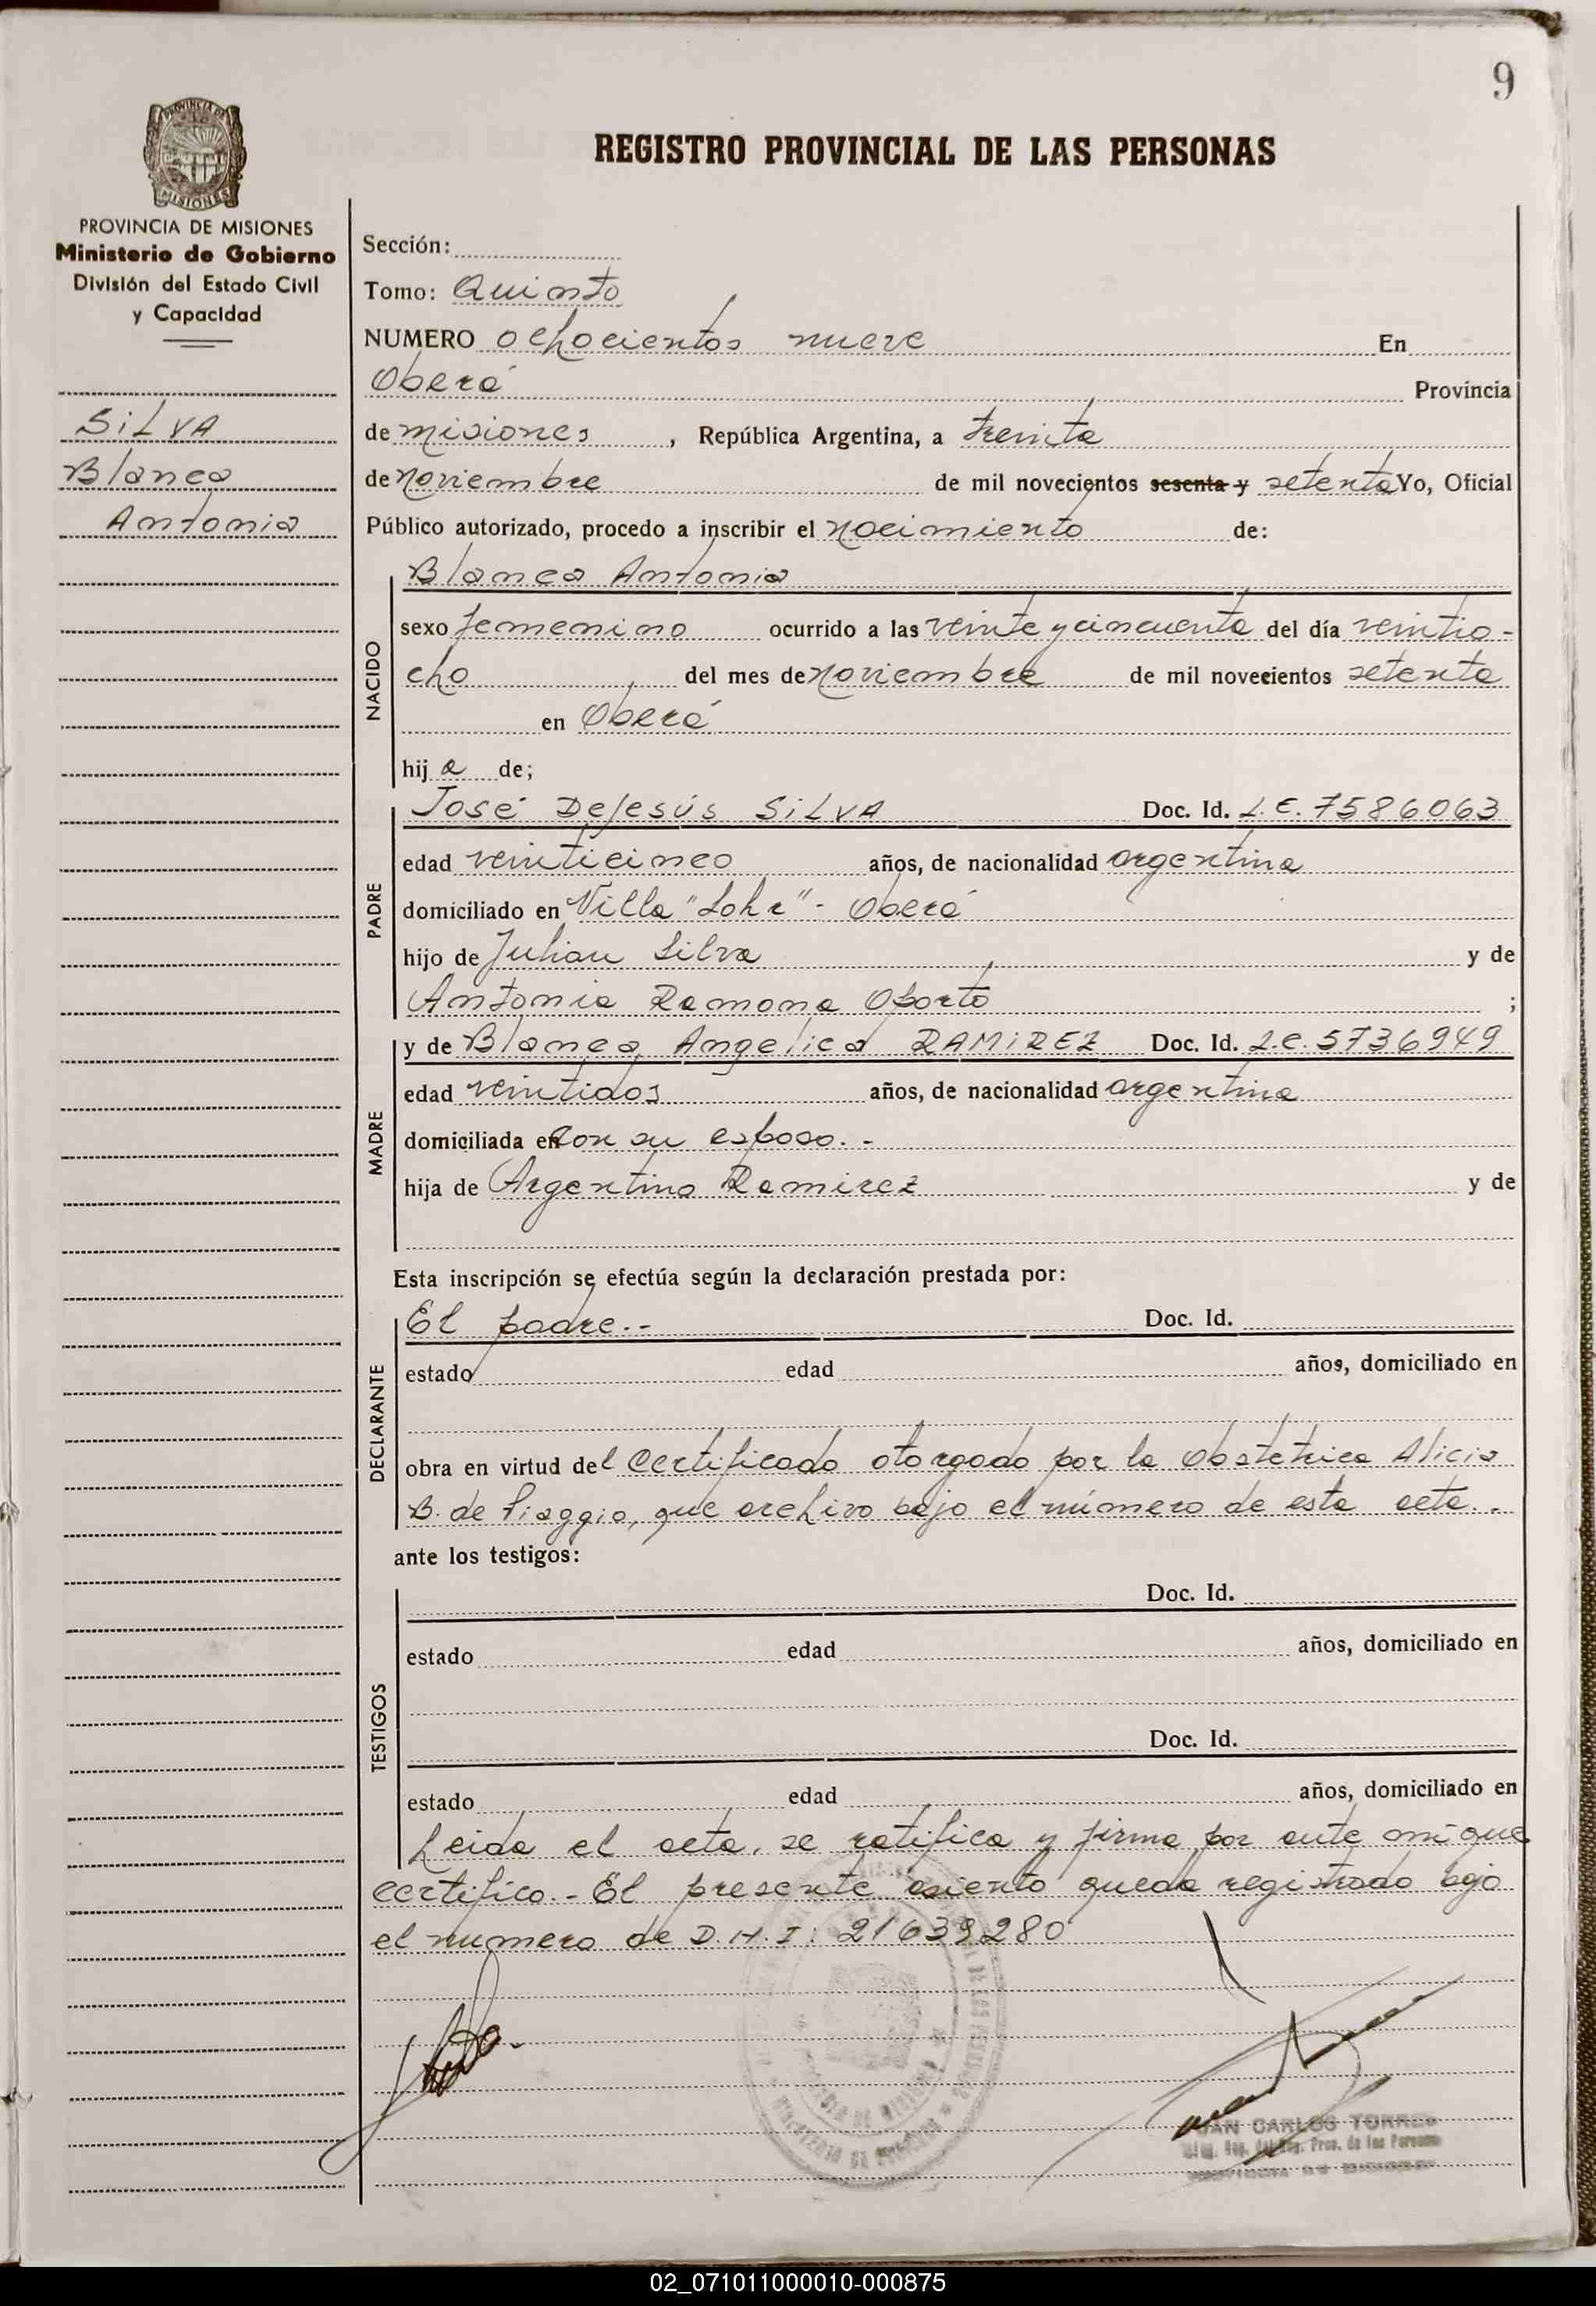 9
REGISTRO PROVINCIAL DE LAS PERSONAS
PROVINCIA DE MISIONES
Ministerio de Gobierno
División del Estado Civil
y Capacidad
SILVA
Blanca
Antonia
Sección:
Tomo: Quinto
NUMERO ochocientos nueve En
Oberá Provincia
de misiones, República Argentina, a treinta
de noviembre de mil novecientos sesenta y setenta Yo, Oficial
Público autorizado, procedo a inscribir el nacimiento de:
NACIDO
Blanca Antonia
sexo femenino ocurrido a las veinte y cincuenta del día veintio-
cho del mes de noviembre de mil novecientos setenta
en Oberá
hija de;
PADRE
José DeJesús SILVA Doc. Id. L.E. 7586063
edad veinticinco años, de nacionalidad argentina
domiciliado en Villa "Lohr" - Oberá
hijo de Julian Silva y de
Antonia Ramona Oporto ;
MADRE
y de Blanca Angelica RAMIREZ Doc. Id. L.C. 5736949
edad veintidos años, de nacionalidad argentina
domiciliada en con su esposo. -
hija de Argentina Ramirez y de
Esta inscripción se efectúa según la declaración prestada por:
DECLARANTE
El padre.- Doc. Id.
estado edad años, domiciliado en
obra en virtud del certificado otorgado por la obstetrica Alicia
B. de Piaggio, que archivo bajo el número de esta acta. -
ante los testigos:
TESTIGOS
Doc. Id.
estado edad años, domiciliado en
Doc. Id.
estado edad años, domiciliado en
Leida el acta, se ratifica y firma por ante mi que
certifico. - El presente asiento queda registrado bajo
el numero de D.N.I: 21639280
JUAN CARLOS TORRES
Prov. de las Personas
02_071011000010-000875